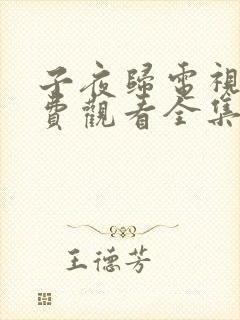 子夜歸電視
費觀看全集
王德芳